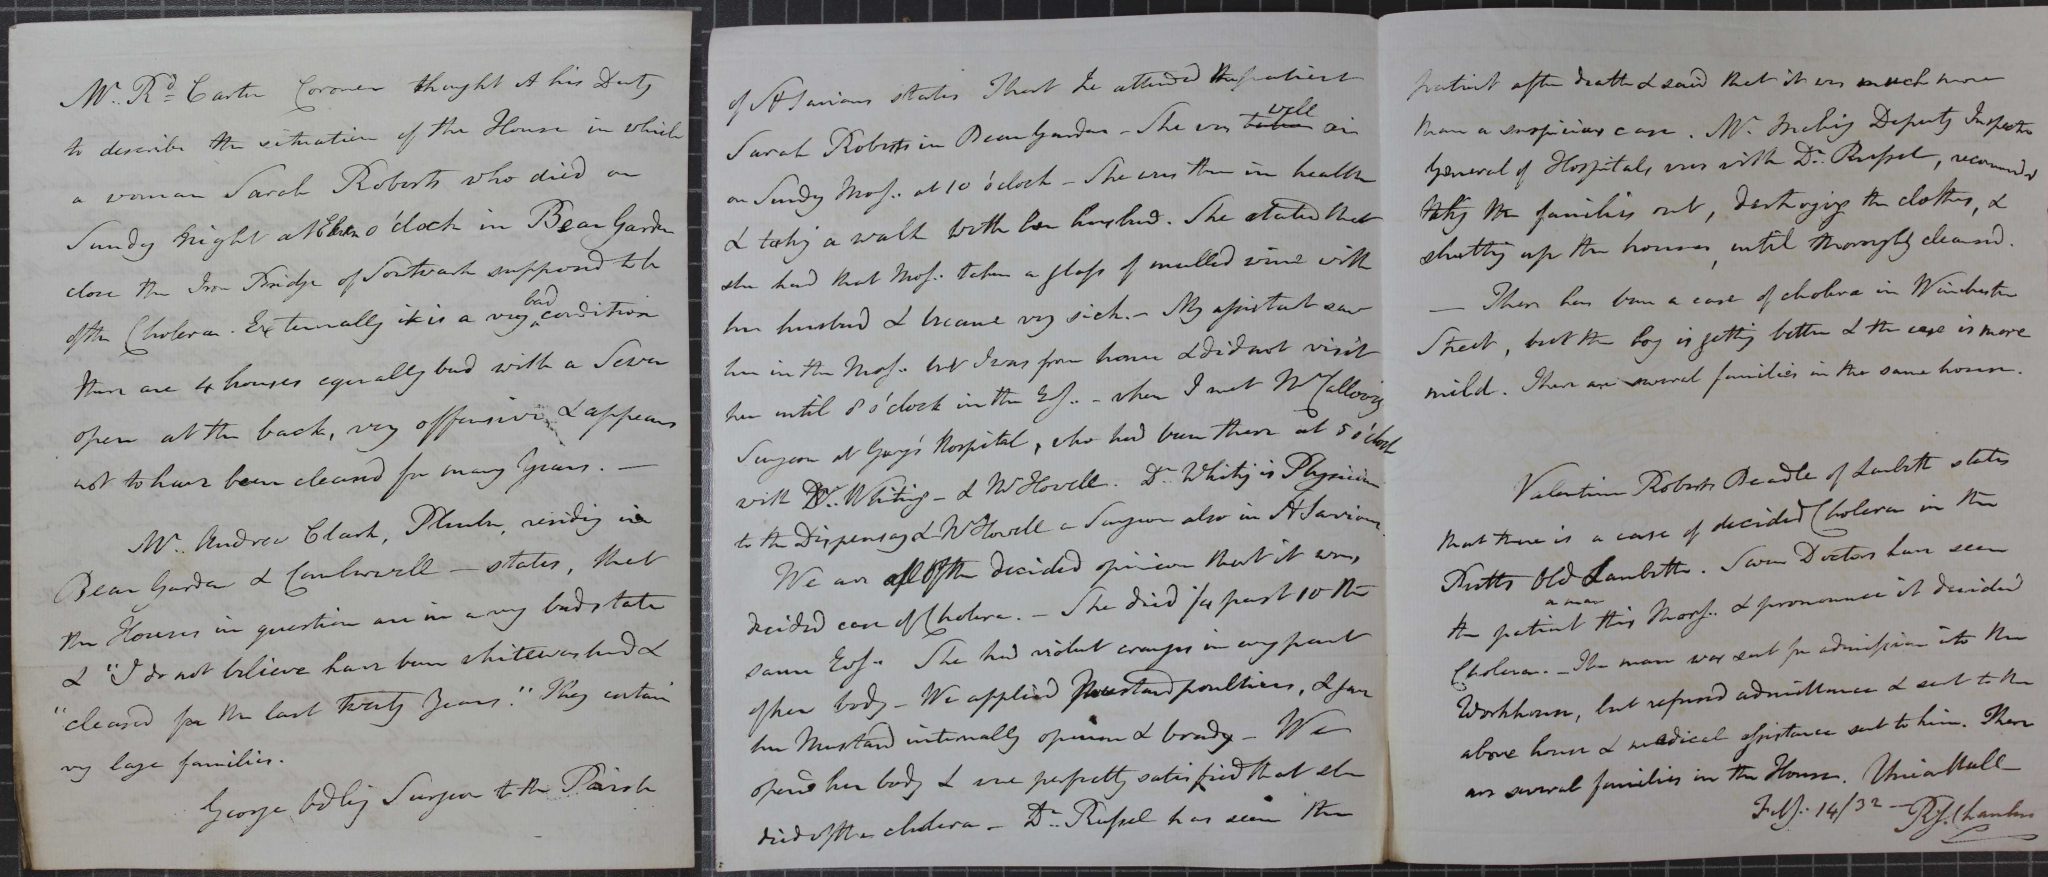 Mr. Rd. Carter Coroner thought it his Duty
to describe the situation of the House in which
a woman Sarah Roberts who died on
Sunday Night at Eleven o'clock in Bear Garden
close the Iron Bridge of Southwark supposed to be
of the Cholera. Externally it is a very bad condition
there are 4 houses equally bad with a Sewer
open at the back, very offensive & appears
not to have been cleansed for many Years. —
Mr. Andrew Clark, Plumber, residing in
Bear Garden & Camberwell — states, that
the Houses in question are in a very bad state
& "I do not believe have been whitewashed &
"cleansed for the last twenty Years." They contain
very large families.
George Odling Surgeon to the Parish
of St Saviours states That he attended the patient
Sarah Roberts in Bear Garden – She was taken well
on Sunday Morg. at 10 o'clock – She was then in health
& taking a walk with her husband. She stated that
she had that Morg. taken a glass of mulled wine with
her husband & became very sick. – My assistant saw
her in the Morg. but I was from home & did not visit
her until 8 o'clock in the Eg. – when I met Mr Callaway
Surgeon at Guy's Hospital, who had been there at 5 o'clock
with Dr. Whiting – & Mr Howell. Dr. Whiting is Physician
to the Dispensary & Mr Howell a Surgeon also in St Saviours.
We are all of the decided opinion that it was
decided case of Cholera. – She died 1/4 past 10 the
same Evg. She had violent cramps in every part
of her body – We applied mustard poultices, & gave
her Mustard internally opium & brandy – We
opened her body & are perfectly satisfied that she
died of the cholera – Dr. Russel has seen the
patient after death & said that it was much more
than a suspicious case. Mr. Deputy Inspector
General of Hospitals, was with Dr. Russel, recommended
taking the families out, destroying the clothes, &
shutting up the houses, until thoroughly cleansed.
— There has been a case of cholera in Winchester
Street, but the boy is getting better & the case is more
mild. There are several families in the same house.
Valentine Roberts Beadle of Lambeth states
that there is a case of decided Cholera in the
Butts Old Lambeth. Seven Doctors have seen
the patient a man this Morg. & pronounce it decided
Cholera. – The man was sent for admission into the
Workhouse, but refused admittance & sent to the
above house & medical assistance sent to him. There
are several families in the House. Union Hall
Feby. 14/32 – R.J. Chambers